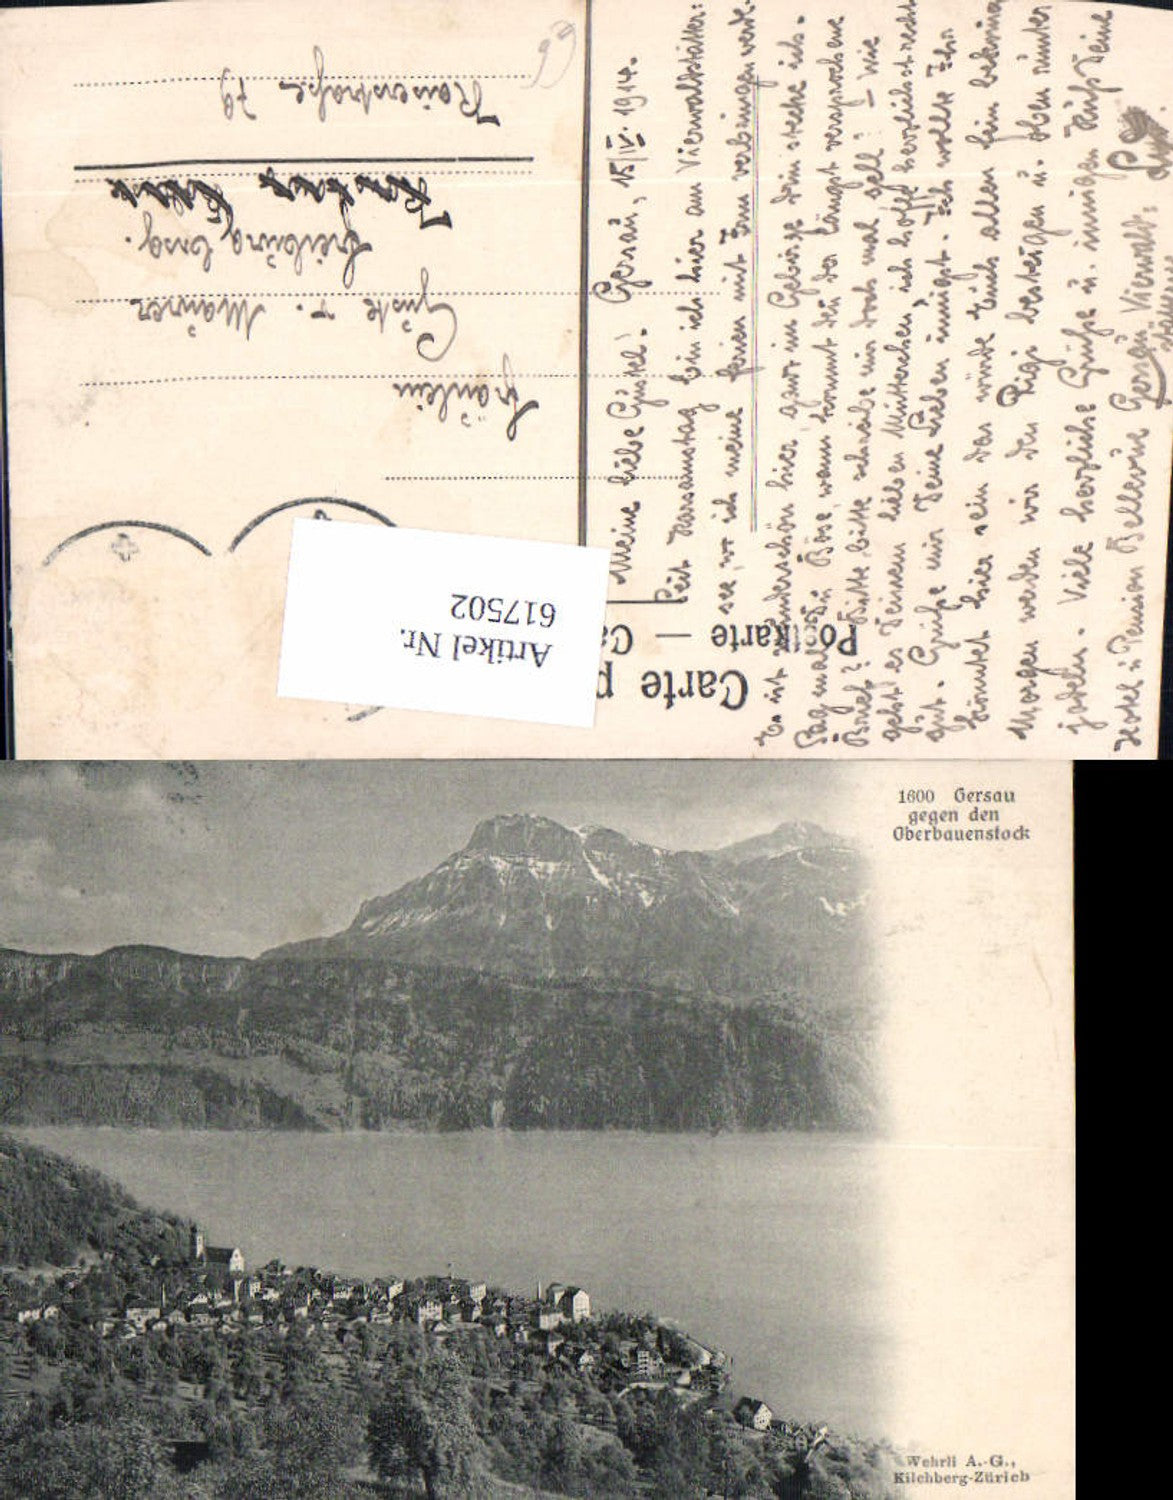 Carte p
Postkarte — Ca
Artikel Nr.
617502
Fräulein
Güste v. Maurer
Freiburg Brsg.
Kaiserstraße 79
Gersau, 15/IV. 1914.
Meine liebe Güstel!
Seit Karsamstag bin ich hier am Vierwaldstätter:
see, wo ich meine Ferien mit Frau verbringen werde.
Es ist wunderschön hier, ganz im Gebirge drin stecke ich.
Sag mal Du Böse, wann kommt den der längst versprochene
Brief? Bitte, bitte schreibe mir doch mal gell! – Wie
geht es Deinem lieben Mütterchen ich hoffe herzlichst recht
gut. Grüße mir Deine Lieben innigst. Ich wollte Ihr
könntet hier sein das würde Euch allen fein bekommen
Morgen werden wir den Rigi besteigen u. oben runter
jodeln. Viele herzliche Grüße u. innigen Kuß Deine
Hotel u Pension Bellevue Gersau Vierwald:
1600 Gersau
gegen den
Oberbauenstock
Wehrli A.-G.,
Kilchberg-Zürich